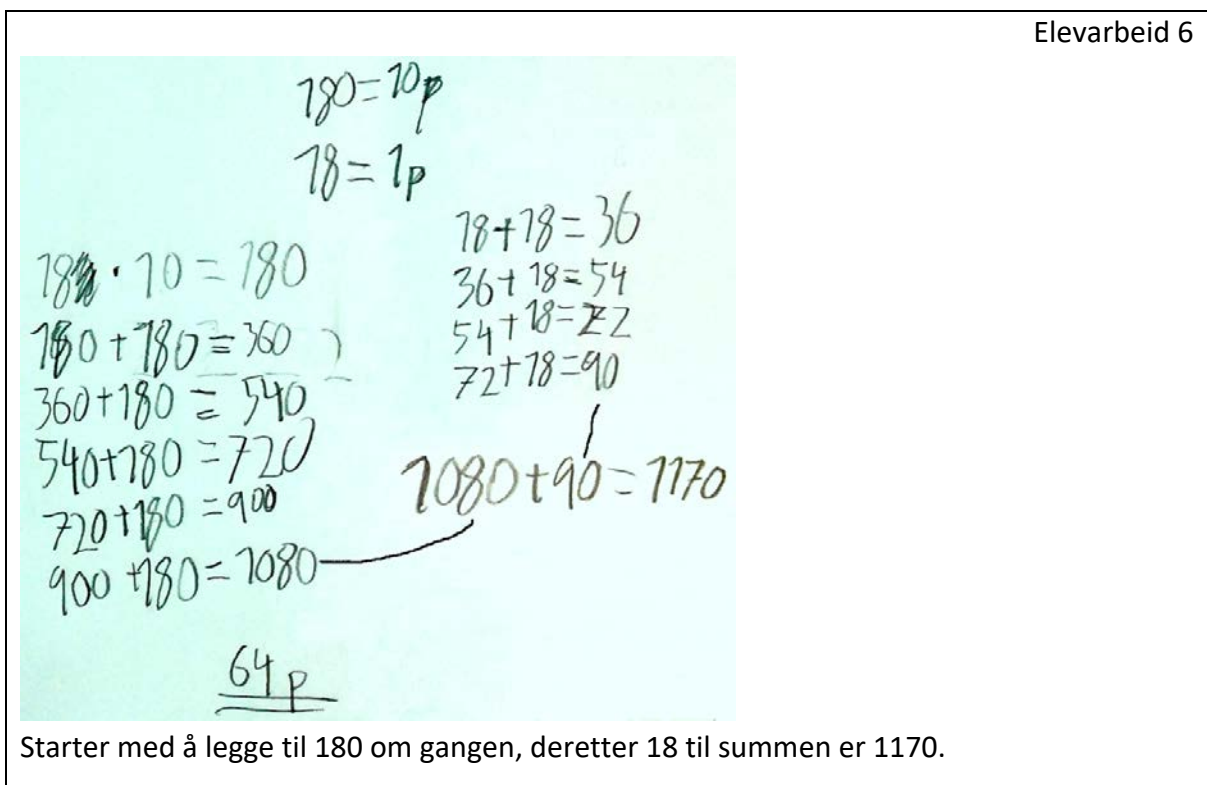 Elevarbeid 6
180=10p
18=1p
18 · 10 = 180
180+180=360
360+180=540
540+180=720
720+180=900
900+180=1080
18+18=36
36+18=54
54+18=72
72+18=90
1080+90=1170
64 p
Starter med å legge til 180 om gangen, deretter 18 til summen er 1170.